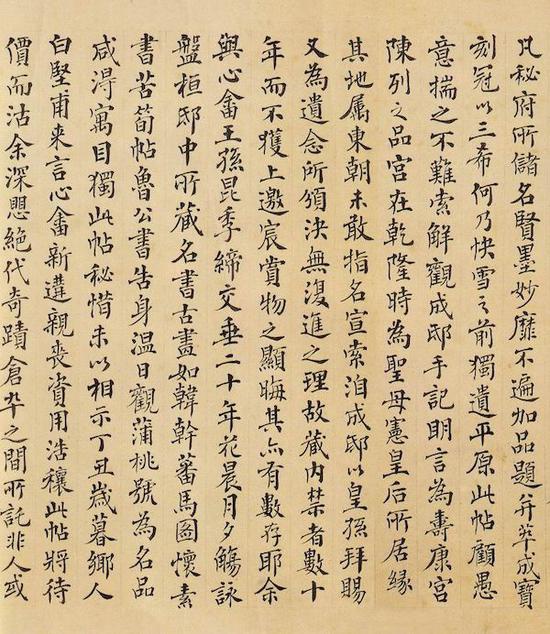 凡秘府所儲名賢墨妙靡不遍加品題并萃成寶
刻冠以三希何乃快雪之前獨遺平原此帖顧愚
意揣之不難索解觀成邸手記明言為壽康宮
陳列之品宮在乾隆時為聖母憲皇后所居緣
其地屬東朝未敢指名宣索洎成邸以皇孫拜賜
又為遺念所頒決無復進之理故藏內禁者數十
年而不獲上邀宸賞物之顯晦其亦有數存耶余
與心畬王孫昆季締交垂二十年花晨月夕觴詠
盤桓邸中所藏名書古畫如韓幹蕃馬圖懷素
書苦筍帖魯公書告身溫日觀蒲桃號為名品
咸得寓目獨此帖秘惜未以相示丁丑歲暮鄉人
白堅甫来言心畬新遘親喪資用浩穰此帖將待
價而沽余深懼絕代奇蹟倉卒之間所託非人或